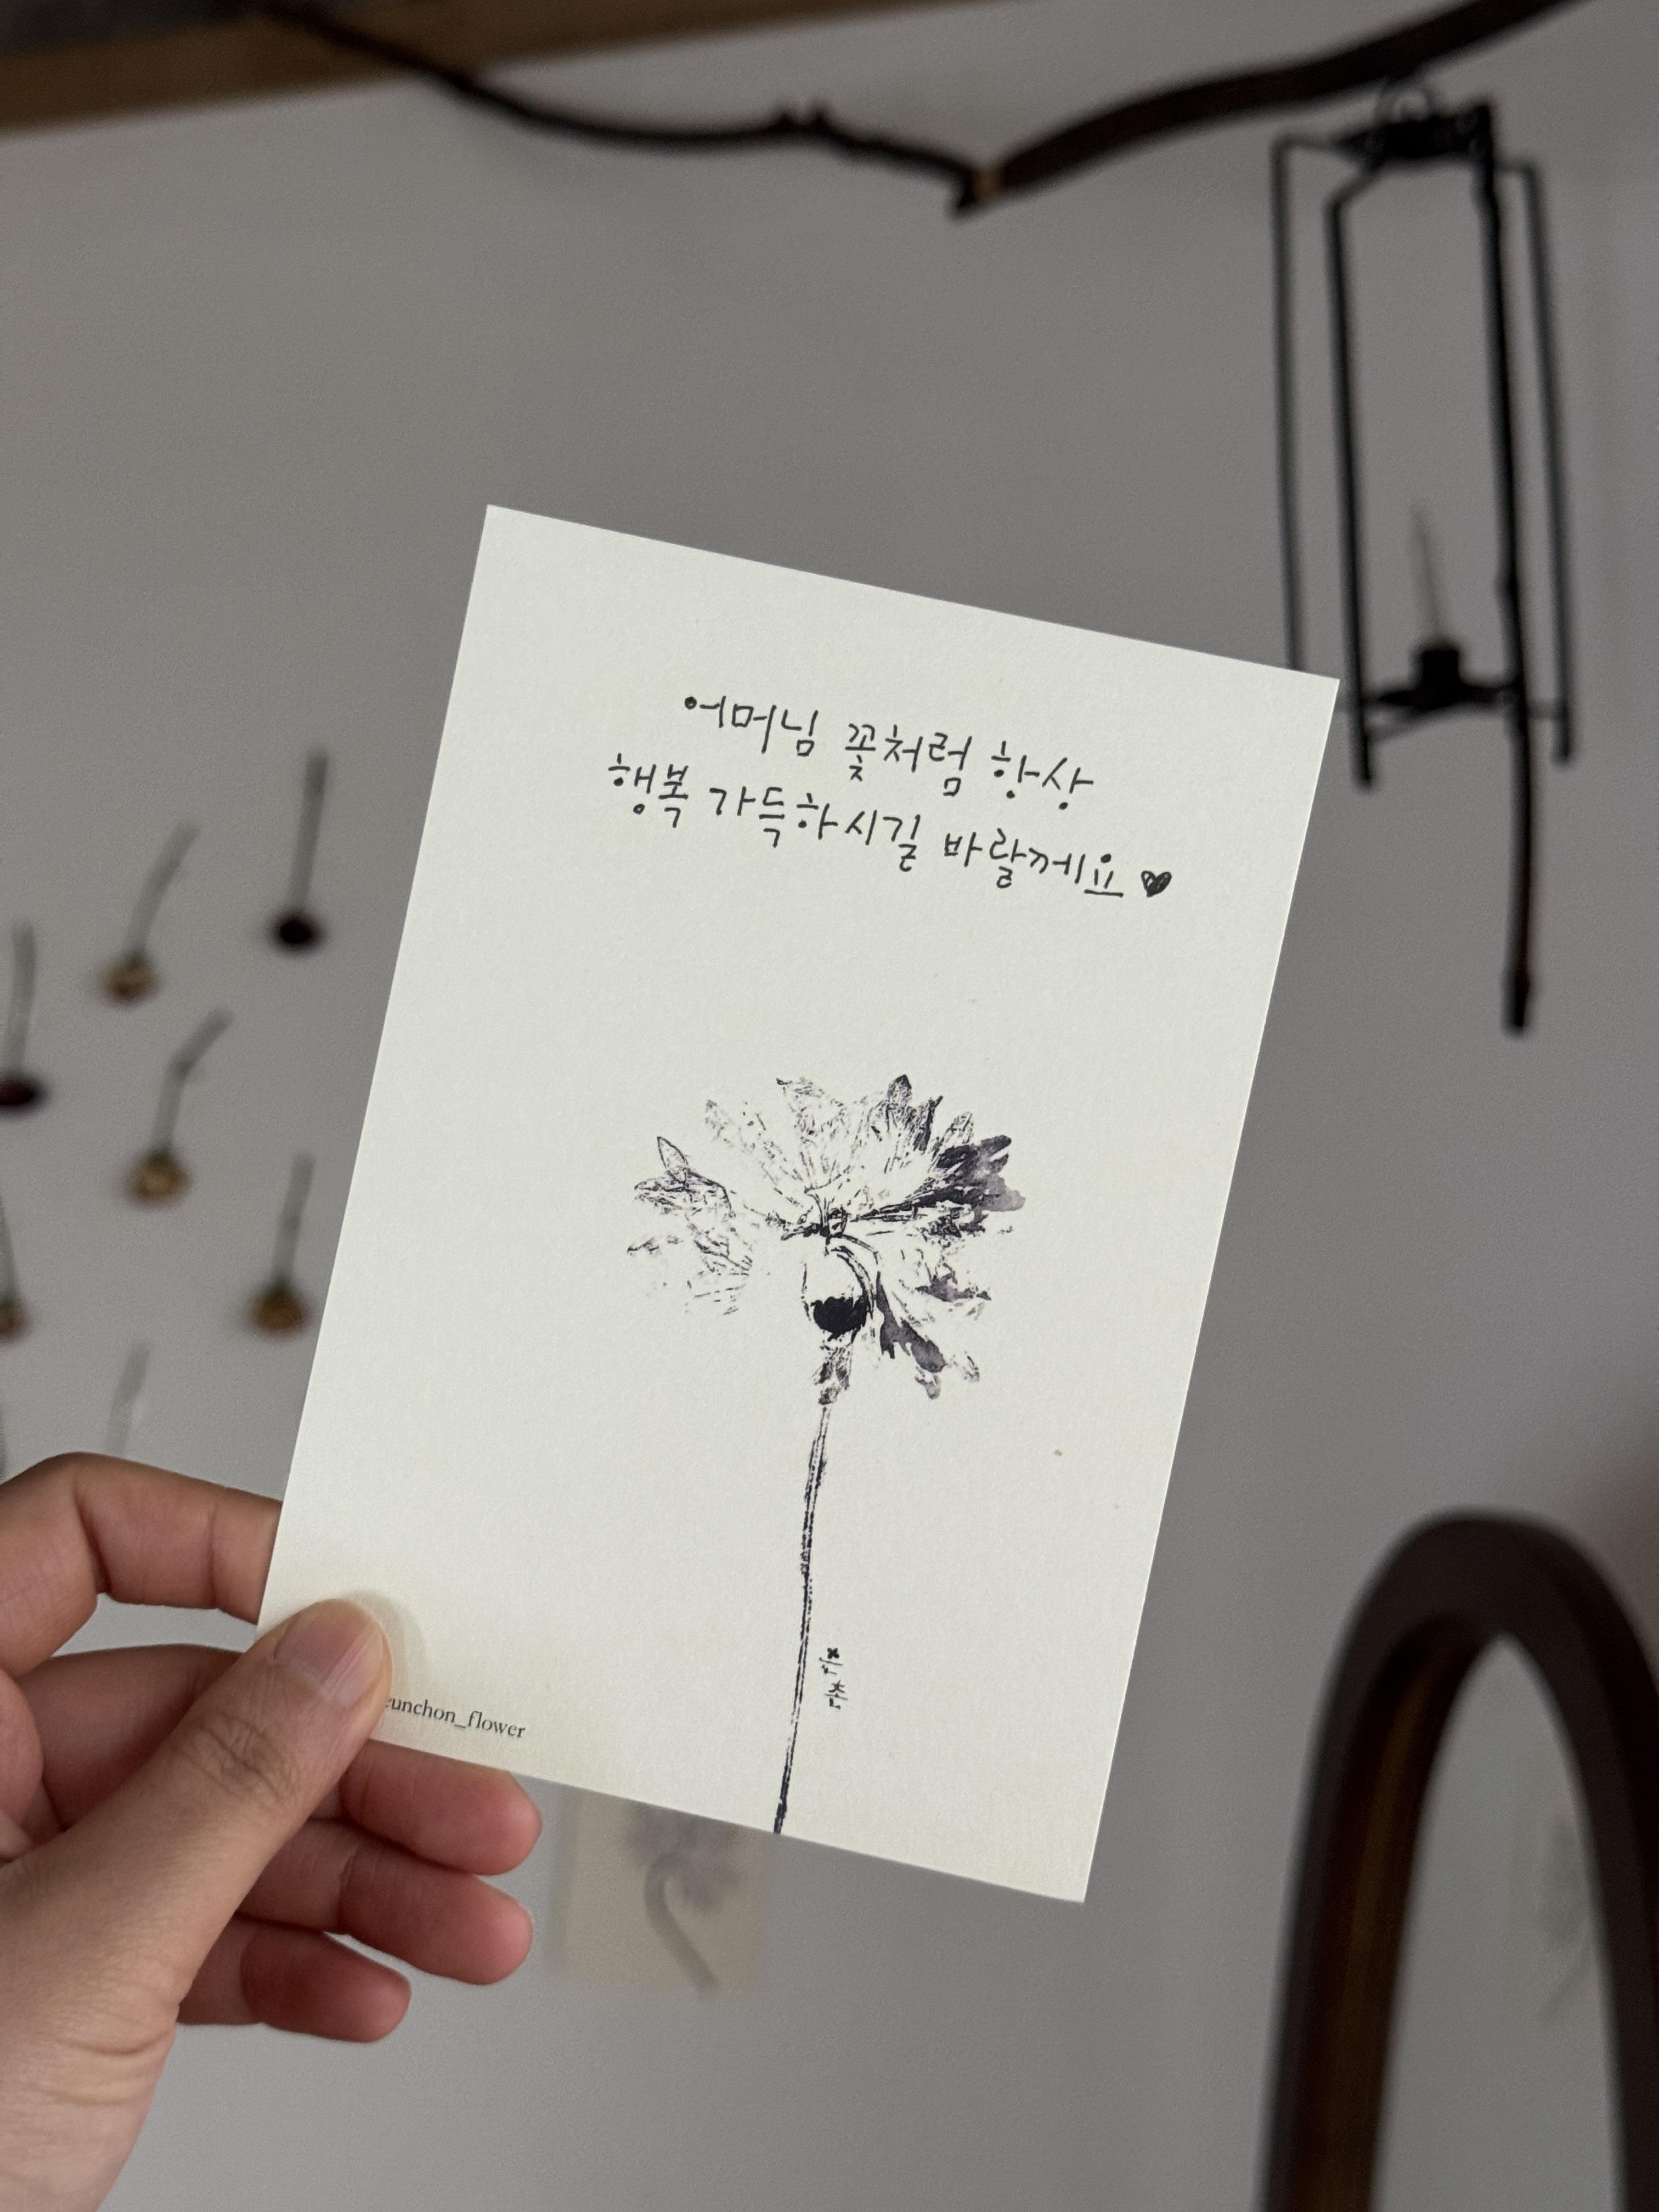 어머님 꽃처럼 항상
행복 가득하시길 바랄께요 ♥
은
촌
eunchon_flower